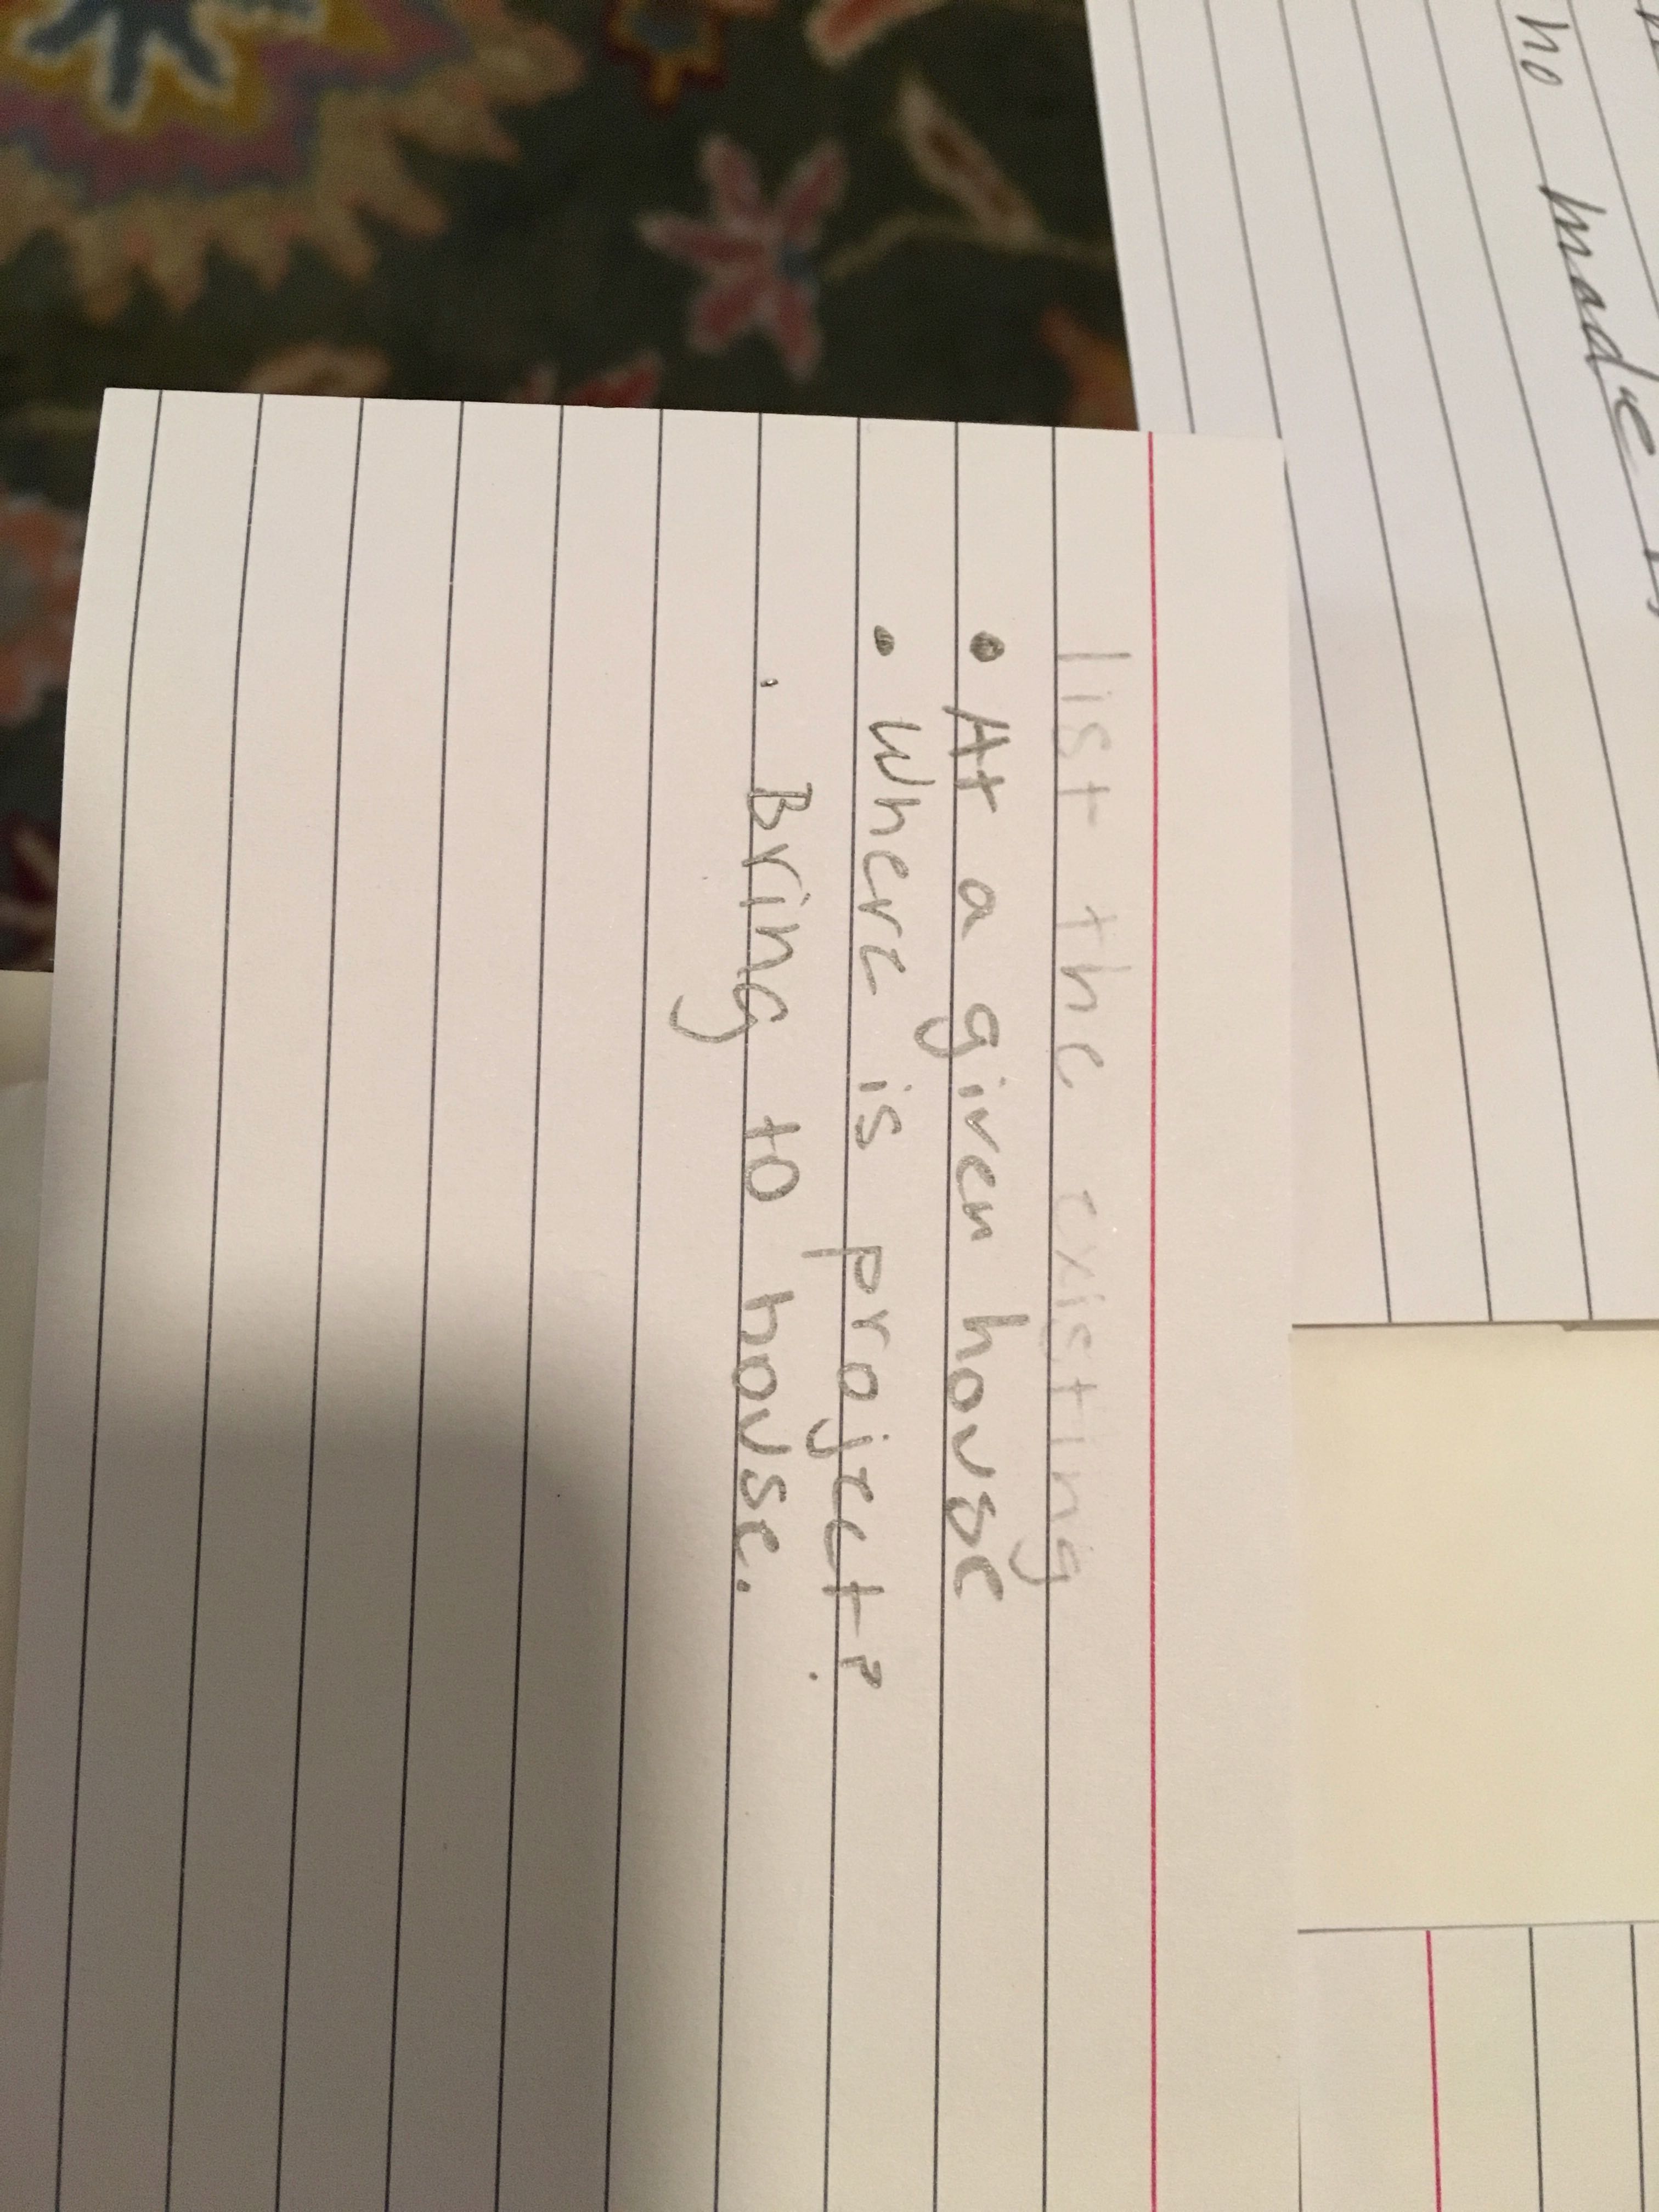 list the existing
• At a given house
• Where is project?
. Bring to house.
ho made